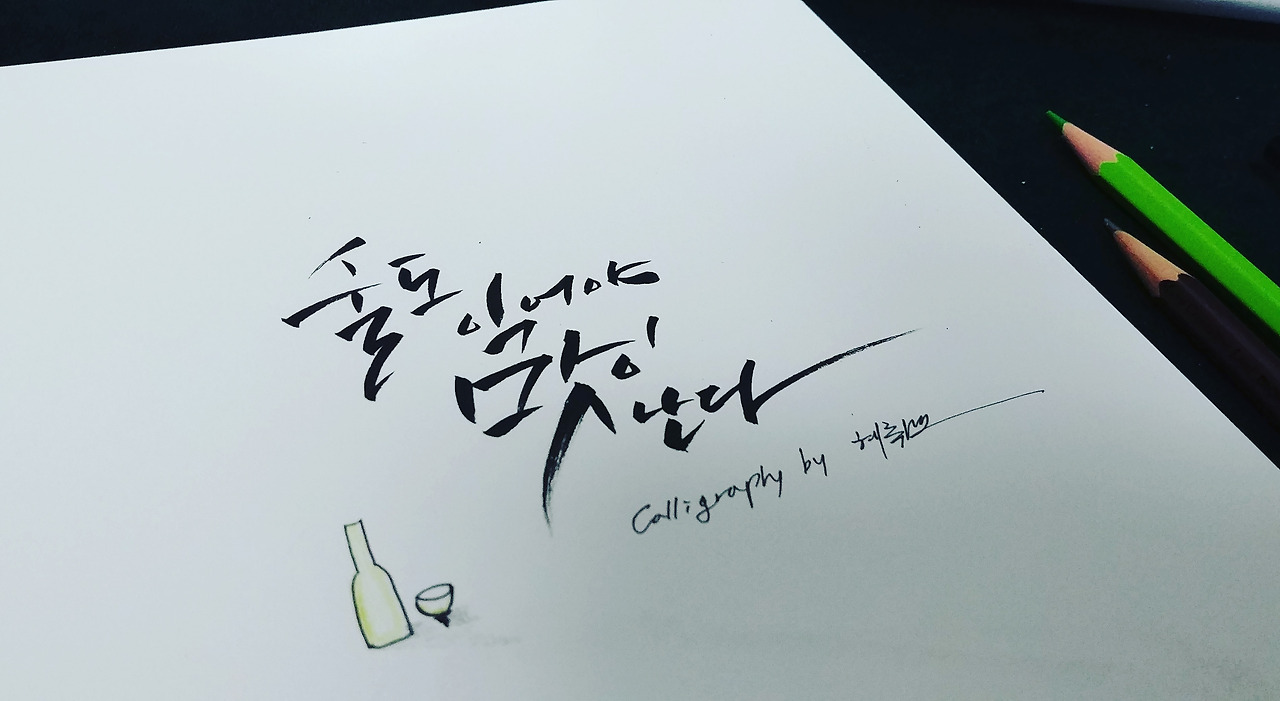 술도 익어야
맛이
난다
Calligraphy by